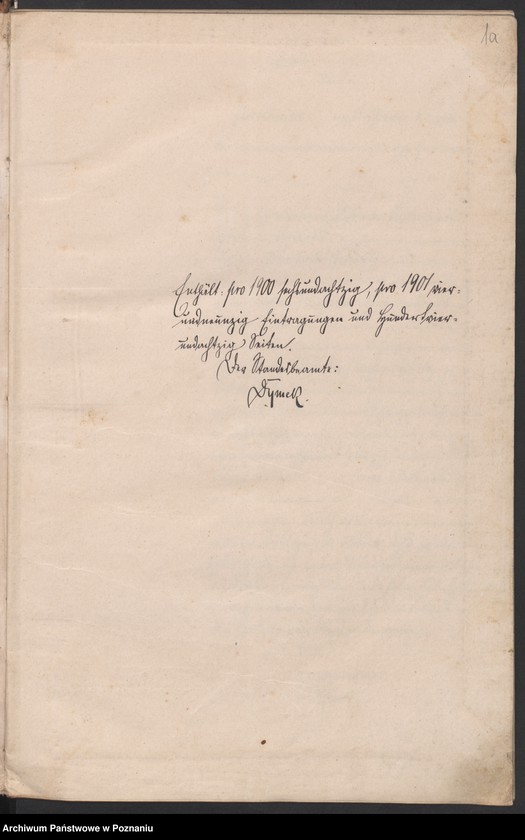 1a
Enthält: pro 1900 sechsundachtzig, pro 1901 vier-
undneunzig Eintragungen und Hundertvier-
undachtzig Seiten.
Der Standesbeamte:
Dymek.
Archiwum Państwowe w Poznaniu